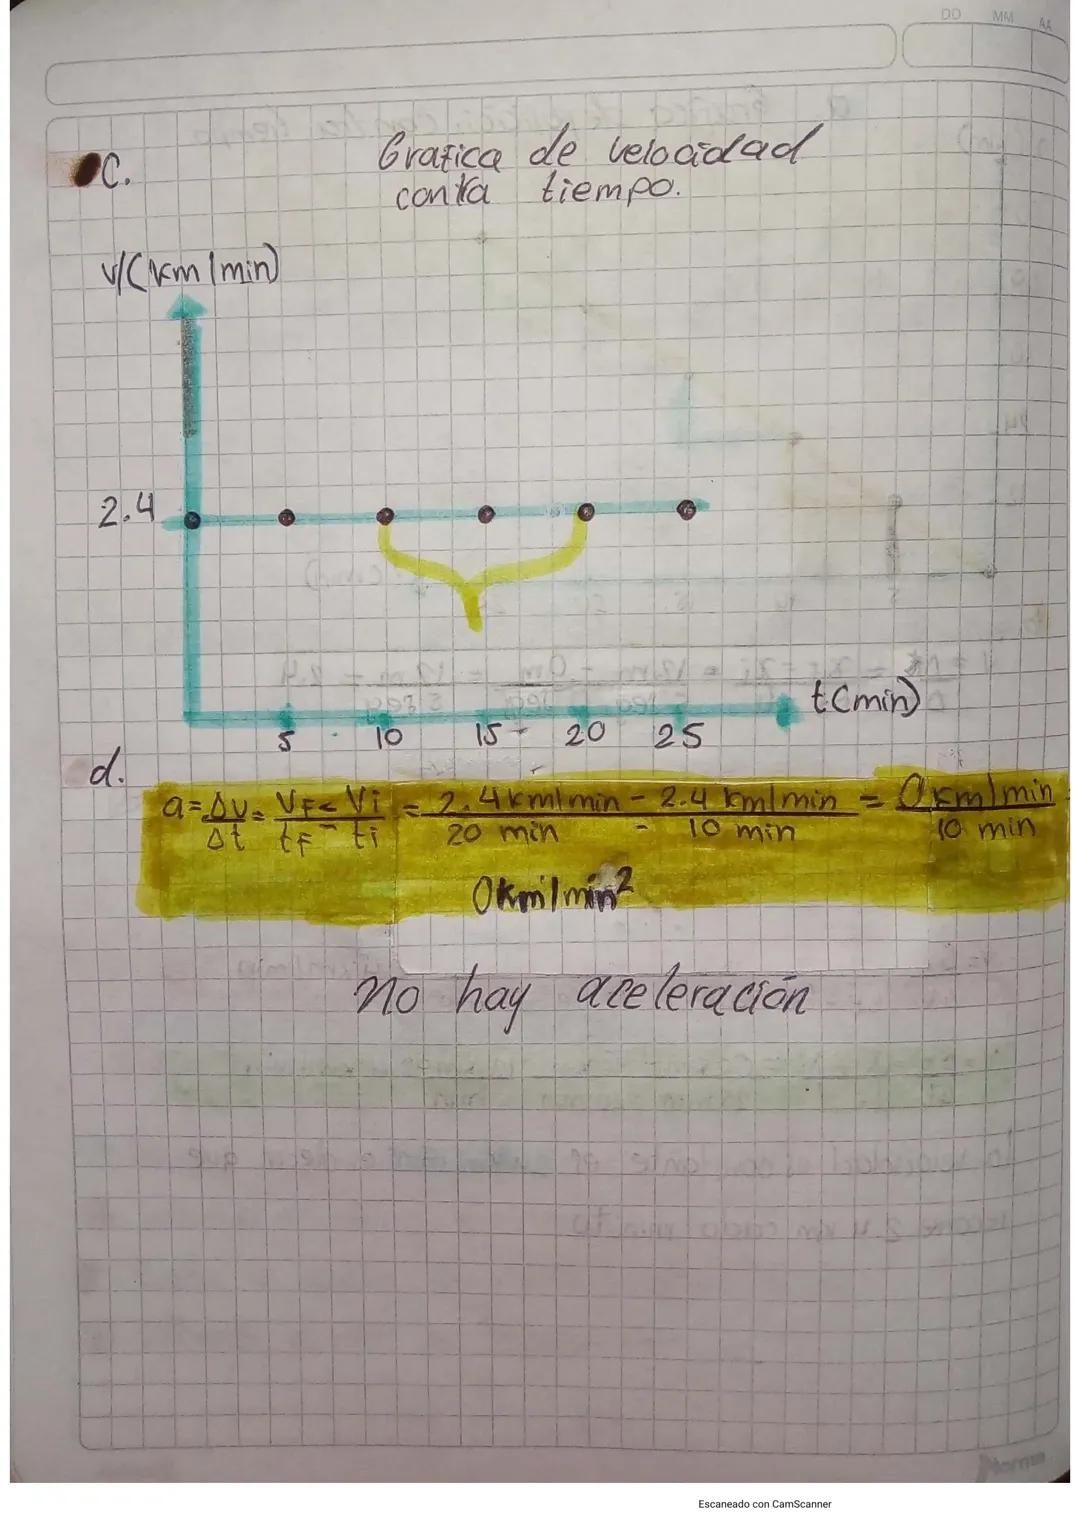 DD MM AA
c. Grafica de velocidad
contra tiempo.
v/(km/min)
2.4
t(min)
5 10 15 20 25
d.
a=Δv/Δt = VF-Vi/tF-ti = 2.4km/min - 2.4 km/min/20 min - 10 min = 0km/min/10 min =
0km/min²
no hay aceleración
Norma
Escaneado con CamScanner